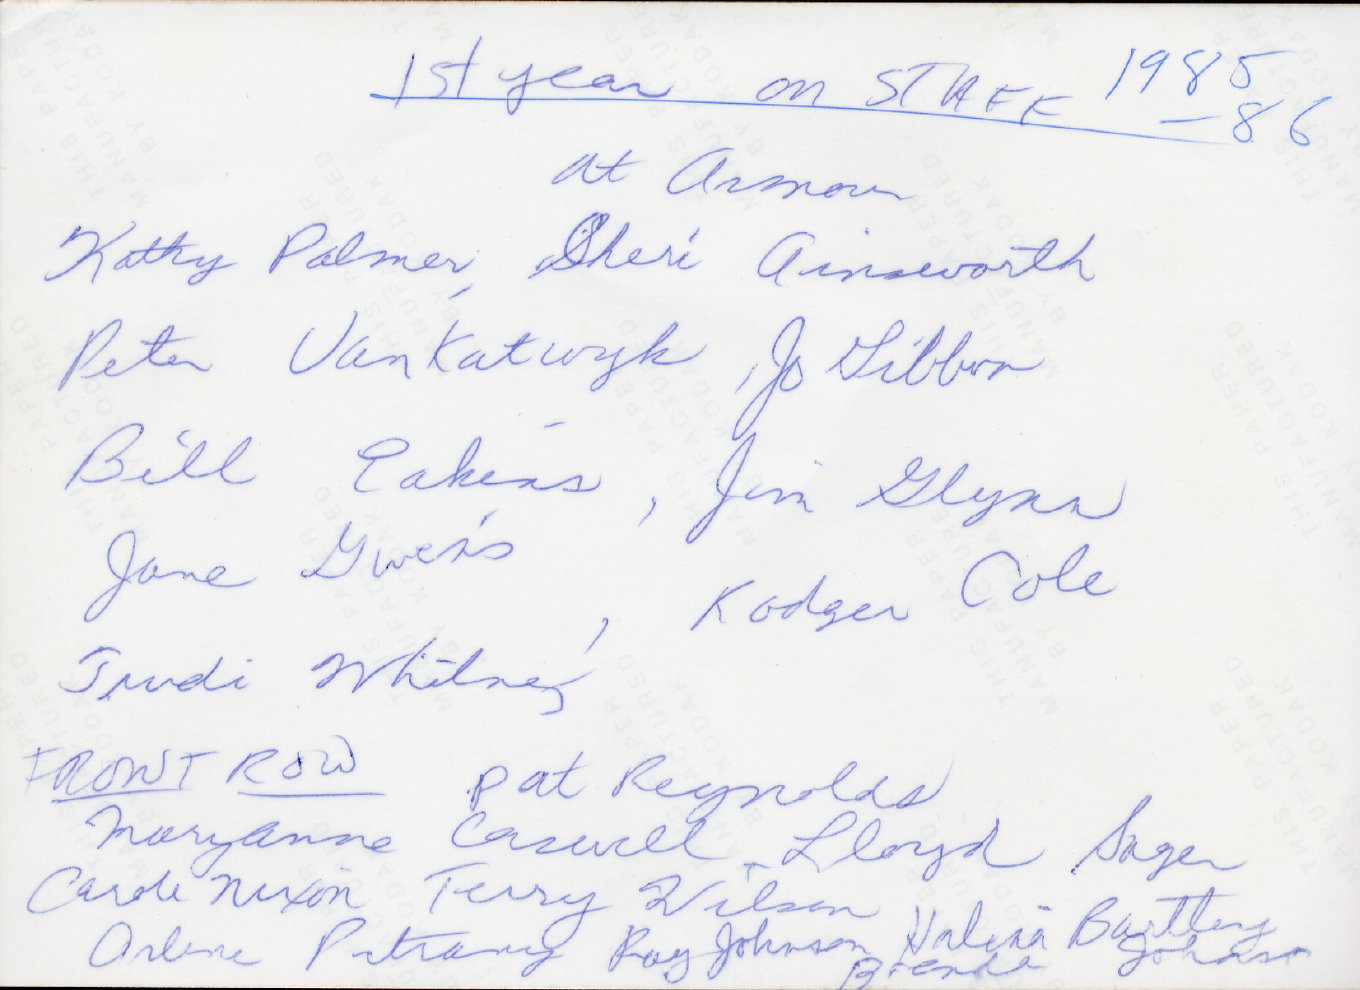 1st year on STAFF 1985
-86
at Armour
Kathy Palmer, Sheri Ainsworth
Peter VanKatwyk, Jo Gibbon
Bill Eakins, Jim Glynn
Jane Gwens, Rodger Cole
Trudi Whitney
FRONT ROW Pat Reynolds
Maryanne Caswell, Lloyd Sager
Carole Nixon Terry Wilson
Arlene Petrany Ray Johnson, Halina Bartley
Brenda Johnson
THIS PAPER
MANUFACTURED
BY KODAK